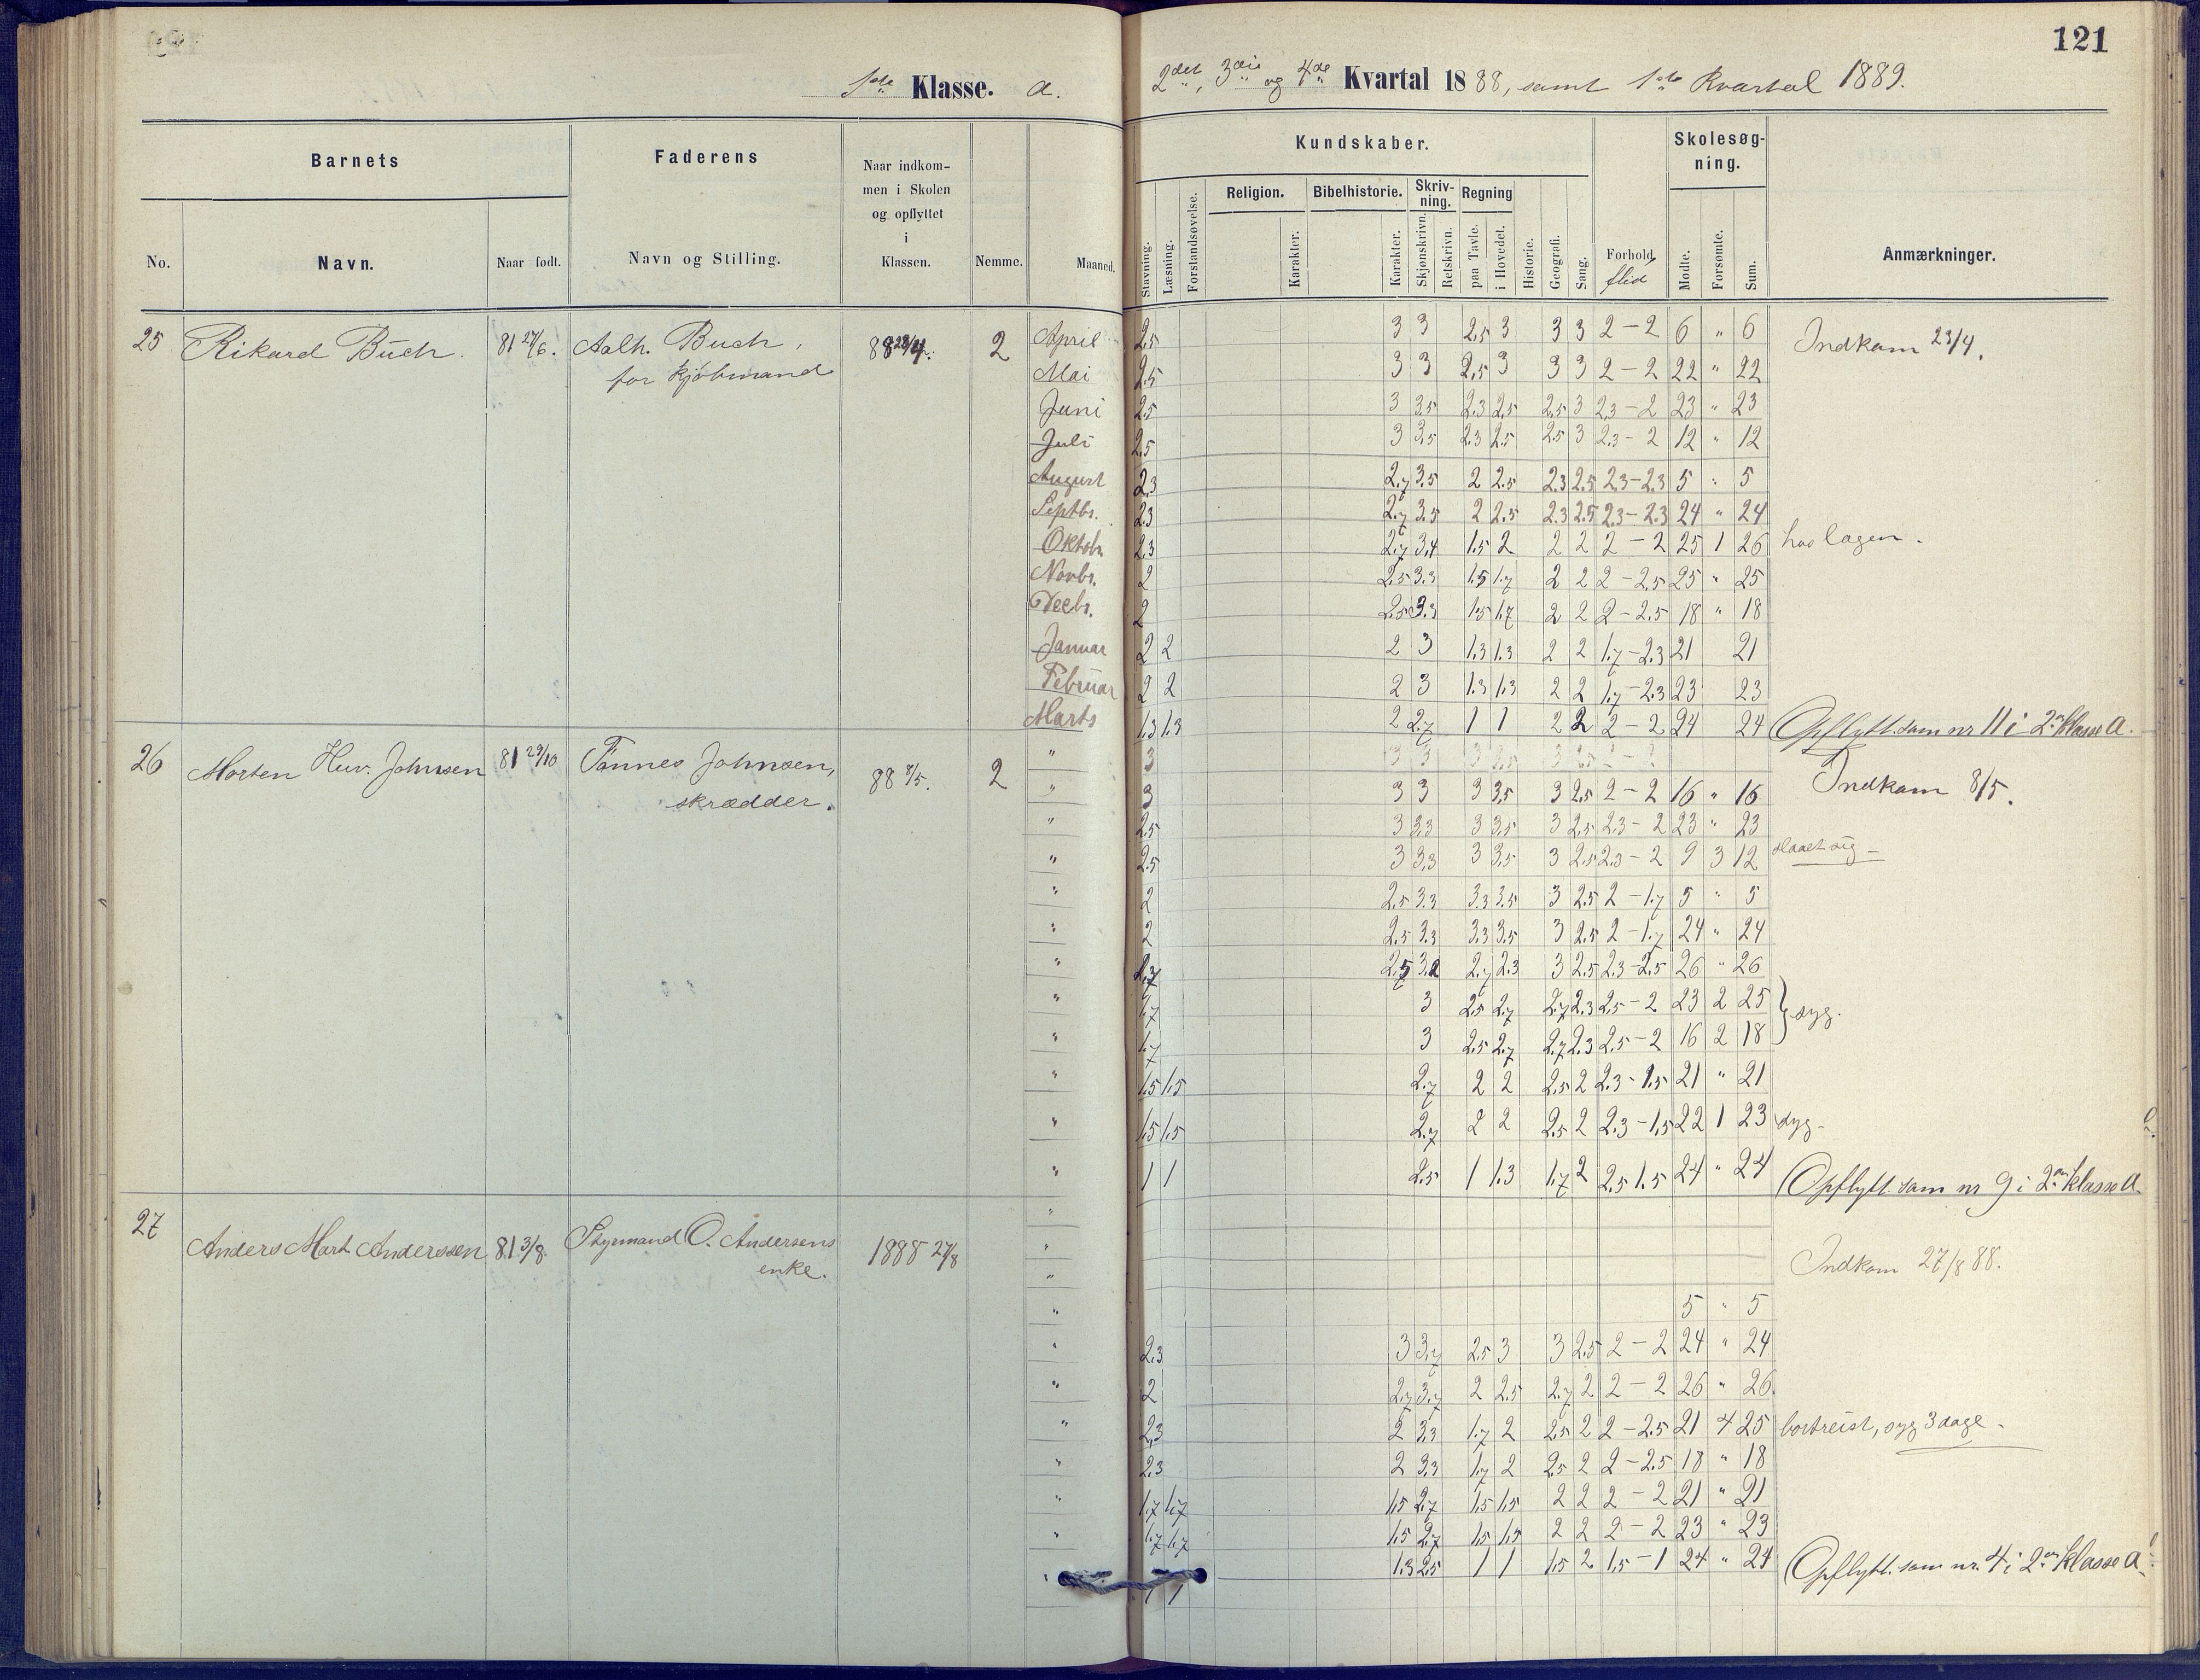 121
1ste Klasse. a.
2det, 3die og 4de Kvartal 1888, samt 1ste Kvartal 1889.
Barnets
Faderens
Naar indkom-
men i Skolen
og opflyttet
i
Klassen.
No.
Navn.
Naar født.
Navn og Stilling.
Nemme.
Maaned.
Kundskaber.
Skolesøg-
ning.
Stavning.
Læsning.
Forstandsøvelse.
Religion.
Karakter.
Bibelhistorie.
Karakter.
Skriv-
ning.
Skjønskrivn.
Retskrivn.
Regning
paa Tavle.
i Hovedet.
Historie.
Geografi.
Sang.
Forhold
flid
Mødte.
Forsømte.
Sum.
Anmærkninger.
25 Rikard Buch. 81 27/6. Buch, 88 23/4. 2 April 2,5 3 3 2,5 3 3 3 2 - 2 6 " 6 Indkom 23/4.
for kjøbmand Mai 2,5 3 3 2,5 3 3 3 2 - 2 22 " 22
Juni 2,5 3 3,5 2,3 2,5 2,5 3 2,3 - 2 23 " 23
Juli 2,5 3 3,5 2,3 2,5 2,5 3 2,3 - 2 12 " 12
August 2,3 2,7 3,5 2 2,5 2,3 2,5 2,3 - 2,3 5 " 5
Septbr. 2,3 2,7 3,5 2 2,5 2,3 2,5 2,3 - 2,3 24 " 24
Oktobr. 2,3 2,7 3,4 1,5 2 2 2 2 - 2 25 1 26 hos lægen.
Novbr. 2 2,5 3,3 1,5 1,7 2 2 2 - 2,5 25 " 25
Decbr. 2 2,5 3,3 1,5 1,7 2 2 2 - 2,5 18 " 18
Januar 2 2 2 3 1,3 1,3 2 2 1,7 - 2,3 21 21
Februar 2 2 2 3 1,3 1,3 2 2 1,7 - 2,3 23 23
Marts 1,3 1,3 2 2,7 1 1 2 2 2 - 2 24 24 Opflytt. som nr 11 i 2en klasse a.
26 Morten Johnsen 81 29/10 Tønnes Johnsen, 88 8/5. 2 " 3
skrædder. " 3 3 3 3 3,5 3 2,5 2 - 2 16 " 16 Indkom 8/5.
" 2,5 3 3,3 3 3,5 3 2,5 2,3 - 2 23 " 23
" 2,5 3 3,3 3 3,5 3 2,5 2,3 - 2 9 3 12 slaaet sig
" 2 2,5 3,3 3,3 3,5 3 2,5 2 - 1,7 5 " 5
" 2 2,5 3,3 3,3 3,5 3 2,5 2 - 1,7 24 " 24
" 2,5 2,7 2,3 3 2,5 2,3 - 2,5 26 " 26
" 1,7 3 2,5 2,7 2,7 2,3 2,5 - 2 23 2 25
" 1,7 3 2,5 2,7 2,7 2,3 2,5 - 2 16 2 18 } syg.
" 1,5 1,5 2,7 2 2 2,5 2 2,3 - 1,5 21 " 21
" 1,5 1,5 2,7 2 2 2,5 2 2,3 - 1,5 22 1 23 syg
" 1 1 2,5 1 1,3 1,7 2 2,5 1,5 24 " 24 Opflytt. som nr 9 i 2en klasse a.
27 Anders Mart. Anderssen 81 3/8. Styrmand O. Andersens 1888 27/8 "
enke. " Indkom 27/8 88.
"
" 5 " 5
" 2,3 3 3,7 2,5 3 3 2,5 2 - 2 24 " 24
" 2 2,7 3,7 2 2,5 2,7 2 2 - 2 26 " 26
" 2,3 2 3,3 1,7 2 2,5 2 2 - 2,5 21 4 25 bortreist, syg 3 dage
" 2,3 2 3,3 1,7 2 2,5 2 2 - 2,5 18 " 18
" 1,7 1,7 1,5 2,7 1,5 1,5 2 2 2 - 2 21 " 21
" 1,7 1,7 1,5 2,7 1,5 1,5 2 2 2 - 2 23 " 23
" 1 1 1,3 2,5 1 1 1,5 2 1,5 - 1 24 " 24 Opflytt. som nr. 4 i 2en klasse a.